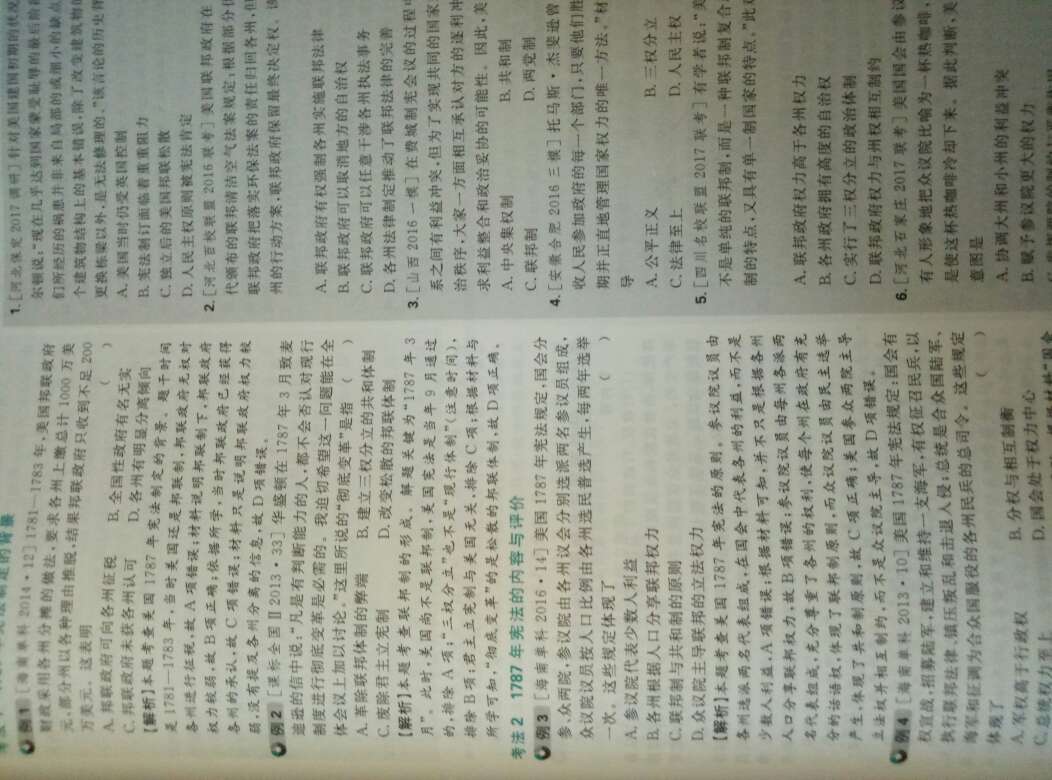 例1 [海南单科2014·12]1781—1783年,美国邦联政府
财政采用各州分摊的做法,要求各州上缴总计1000万美
元,部分州以各种理由推脱,结果邦联政府只收到不足200
万美元。这表明 ( )
A.邦联政府可向各州征税 B.全国性政府有名无实
C.邦联政府未获各州认可 D.各州有明显分离倾向
【解析】本题考查美国1787年宪法制定的背景。题干时间
是1781—1783年,当时美国还是邦联制,邦联政府无权对
各州进行征税,故A项错误;材料说明邦联制下,邦联政府
权力较弱,故B项正确;依据所学,当时邦联政府已经获得
各州的承认,故C项错误;材料只是说明邦联政府权力较
弱,没有提及各州分离的信息,故D项错误。
例2 [课标全国Ⅱ2013·33]华盛顿在1787年3月致麦
迪逊的信中说:“凡是有判断能力的人,都不会否认对现行
制度进行彻底变革是必需的。我迫切希望这一问题能在全
体会议上加以讨论。”这里所说的“彻底变革”是指 ( )
A.革除联邦体制的弊端 B.建立三权分立的共和体制
C.废除君主立宪制 D.改变松散的邦联体制
【解析】本题考查联邦制的形成。解题关键为“1787年3
月”。此时,美国尚不是联邦制,美国宪法是当年9月通过
的,排除A项;“三权分立”也不是“现行体制”(注意时间),
排除B项;君主立宪制与美国无关,排除C项;根据材料与
所学可知,“彻底变革”的是松散的邦联体制,故D项正确。
考法2 1787年宪法的内容与评价
例3 [海南单科2016·14]美国1787年宪法规定,国会分
参、众两院,参议院由各州议会分别选派两名参议员组成,
众议院议员按人口比例由各州选民普选产生,每两年选举
一次。这些规定体现了 ( )
A.参议院代表少数人利益
B.各州根据人口分享联邦权力
C.联邦制与共和制的原则
D.众议院主导联邦的立法权力
【解析】本题考查美国1787年宪法的原则。参议院议员由
各州选派两名代表组成,在国会中代表各州的利益,而不是
少数人利益,A项错误;根据材料可知,并不只是根据各州
人口分享联邦权力,故B项错误;参议院议员由每州各派两
名代表组成,充分尊重了各州的权利,使每个州在政府有充
分的话语权,体现了联邦制原则,而众议院议员由民主选举
产生,体现了共和制原则,故C项正确;美国参众两院主导
立法权并相互制约,而不是众议院主导,故D项错误。
例4 [海南单科2013·10]美国1787年宪法规定:国会有
权宣战,招募陆军,建立和维持一支海军,有权征召民兵,以
执行联邦法律,镇压叛乱和击退入侵;总统是合众国陆军、
海军和征调为合众国服役的各州民兵的总司令。这些规定
体现了 ( )
A.军权高于行政权 B.分权与相互制衡
C.总统权力 D.国会处于权力中心
1.[河北保定2017调研]针对美国建国初期的状况
尔顿说:“现在几乎达到国家蒙受耻辱的最后阶段
们所经历的祸患并非来自局部的或细小的缺点
个建筑物结构上的基本错误,除了改变建筑物的
更换栋梁以外,是无法修理的。”该言论的历史背
A.美国当时仍受英国控制
B.宪法制订面临着重重阻力
C.独立后的美国邦联松散
D.人民主权原则被宪法肯定
2.[河北百校联盟2016联考]美国联邦政府在
代颁布的联邦清洁空气法案规定:根据部分
联邦政府把落实环保法案的责任归回各州,但
州的行动方案,联邦政府保留最终决定权。该
A.联邦政府有权强制各州实施联邦法律
B.联邦政府可以取消地方的自治权
C.联邦政府可以任意干涉各州执法事务
D.各州法律制定推动了联邦法律的完善
3.[山西2016一模]在费城制宪会议的过程中
系之间有利益冲突,但为了实现共同的国家
治秩序,大家一方面相互承认对方的逐利冲
求利益整合和政治妥协的可能性。因此,美
A.中央集权制 B.共和制
C.联邦制 D.两党制
4.[安徽合肥2016三模]托马斯·杰斐逊曾
收人民参加政府的每一个部门,只要他们胜
期并正直地管理国家权力的唯一方法。”材
导
A.公平正义 B.三权分立
C.法律至上 D.人民主权
5.[四川名校联盟2017联考]有学者说:“美
不是单纯的联邦制,而是一种联邦制复合
制的特点,又具有单一制国家的特点。”此
A.联邦政府权力高于各州权力
B.各州政府拥有高度的自治权
C.实行了三权分立的政治体制
D.联邦政府权力与州权相互制约
6.[河北石家庄2017联考]美国国会由参议
有人形象地把众议院比喻为一杯热咖啡,
是使这杯热咖啡冷却下来。据此判断,美
意图是
A.协调大州和小州的利益冲突
B.赋予参议院更大的权力